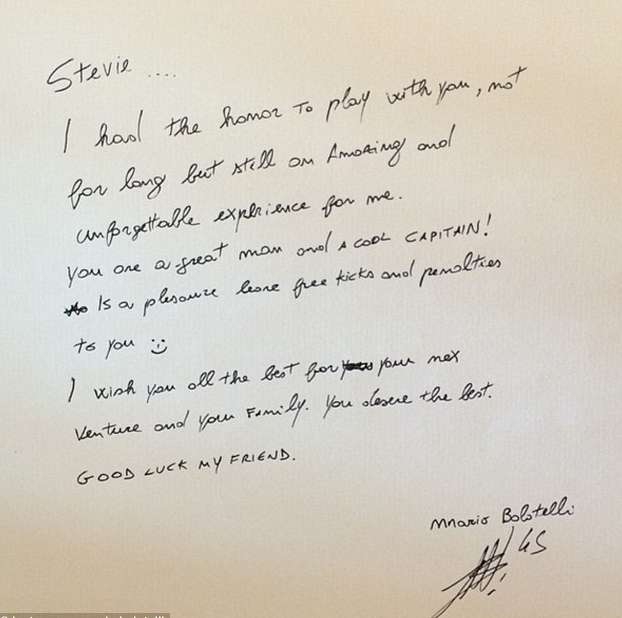 Stevie ....
I had the honor to play with you, not
for long but still an Amazing and
unforgettable experience for me.
you are a great man and A COOL CAPITAIN!
Is a plesaure leave free kicks and penalties
to you :)
I wish you all the best for your nex
venture and your Family. You deserve the best.
GOOD LUCK MY FRIEND.
Mario Balotelli
45